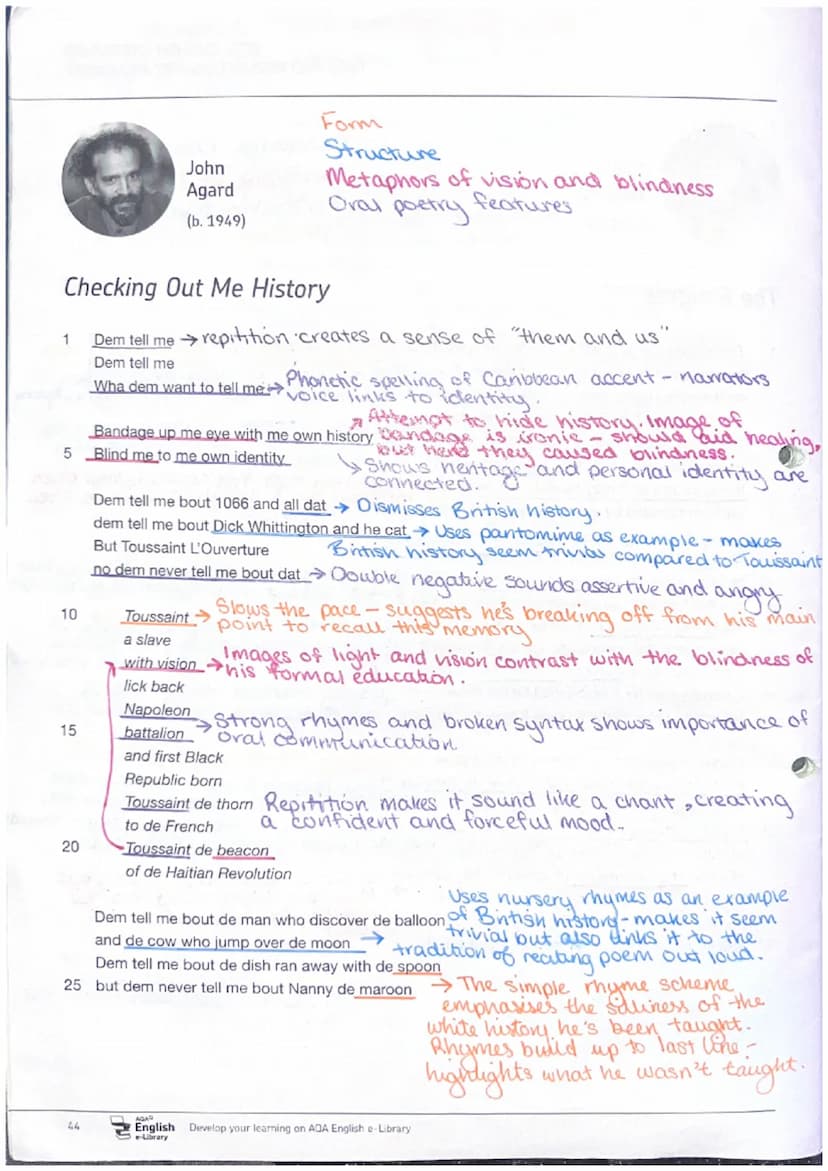 Form
Structure
Metaphors of vision and blindness
Oral poetry features
John
Agard
(b. 1949)
Checking Out Me History
1 Dem tell me → repitition creates a sense of "them and us"
Dem tell me
Wha dem want to tell me → Phonetic spelling of Caribbean accent - narrators
voice links to identity.
Attempt to hide history. Image of
Bandage up me eye with me own history bandage is ironic - should aid healing,
but here they caused blindness.
5 Blind me to me own identity
↘ Shows heritage and personal identity are
connected.
Dem tell me bout 1066 and all dat → Dismisses British history.
dem tell me bout Dick Whittington and he cat → Uses pantomime as example - makes
But Toussaint L'Ouverture British history seem trivial compared to Toussaint
no dem never tell me bout dat → Double negative sounds assertive and angry
10 Toussaint → Slows the pace - suggests he's breaking off from his main
point to recall this memory
a slave
with vision → Images of light and vision contrast with the blindness of
his formal education.
lick back
Napoleon
→ Strong rhymes and broken syntax shows importance of
15 battalion oral communication
and first Black
Republic born
Toussaint de thorn Repitition makes it sound like a chant, creating
to de French a confident and forceful mood..
20 Toussaint de beacon
of de Haitian Revolution
Uses nursery rhymes as an example
Dem tell me bout de man who discover de balloon of British history - makes it seem
and de cow who jump over de moon → trivial but also links it to the
tradition of reciting poem out loud.
Dem tell me bout de dish ran away with de spoon
25 but dem never tell me bout Nanny de maroon → The simple rhyme scheme
emphasises the silliness of the
white history he's been taught.
Rhymes build up to last line -
highlights what he wasn't taught.
44 AQA English e-Library Develop your learning on AQA English e-Library